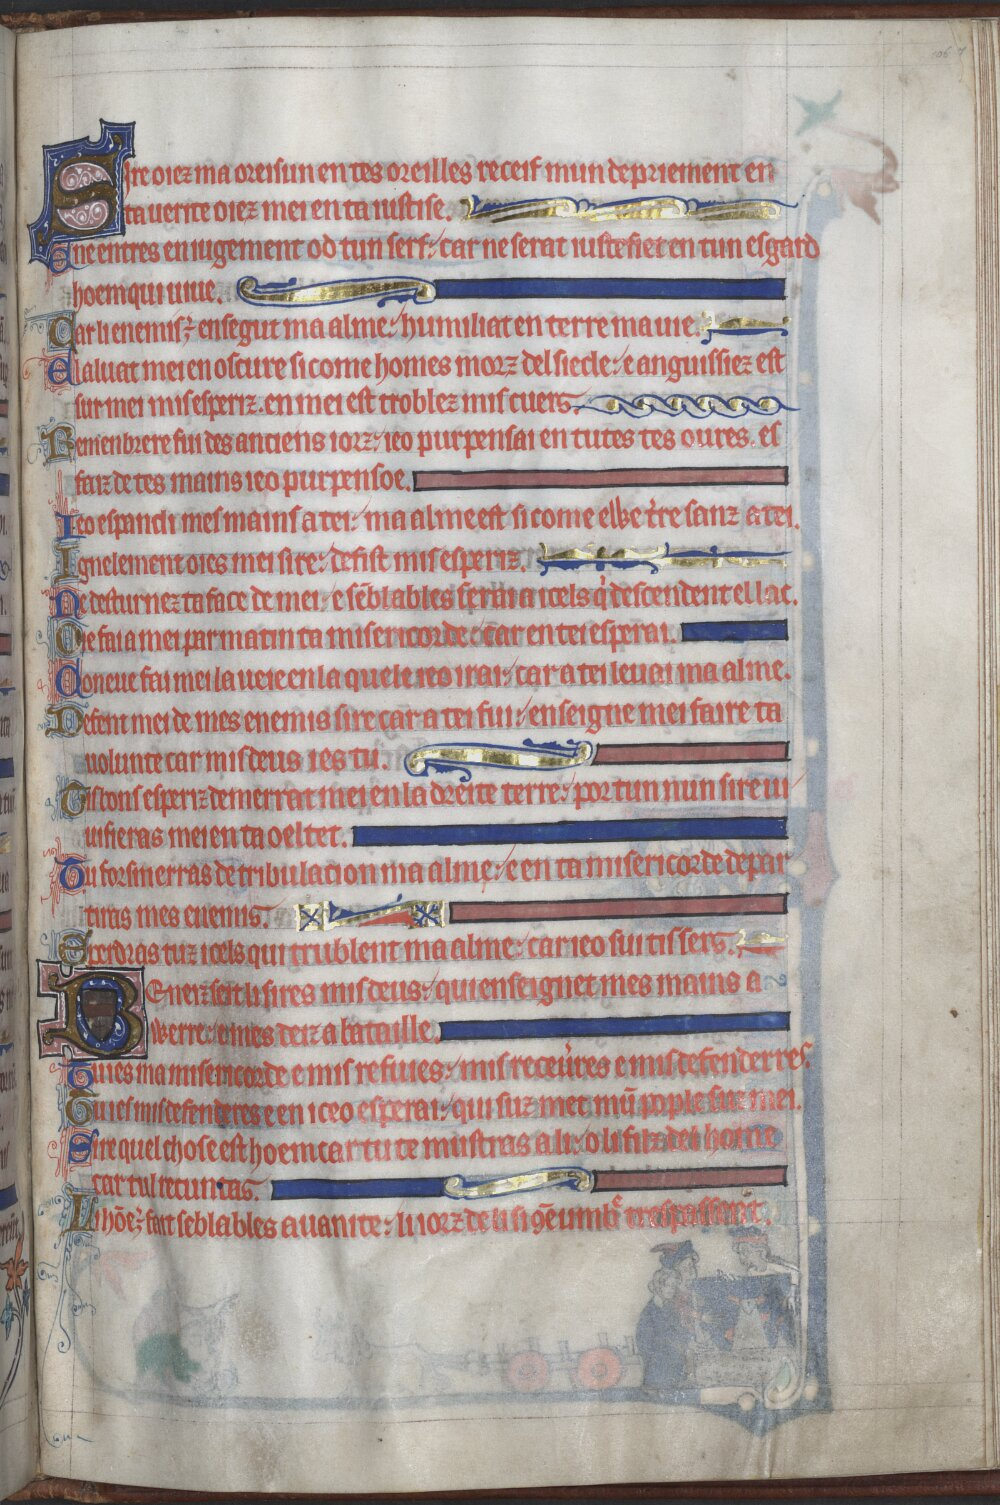 Sire oiez ma oreisun en tes oreilles receif mun depriement en
ta uerite oiez mei en ta iustise.
E ne entres en iugement od tun serf: car ne serat iustefiet en tun esgard
hoem qui uiue.
Car li enemis ensegut ma alme: humiliat en terre ma uie.
Aluat mei en oscure sicome homes morz del siecle: e anguissiez est
sur mei mis esperiz. en mei est troblez mis cuers
Remenbrere fui des anciens iorz: ieo purpensai en tutes tes oures. es
faiz de tes mains ieo purpensoe.
Ieo espandi mes mains a tei: ma alme est sicome terre sanz a tei.
Ignelement oies mei sire: defist mis esperiz.
Ne desturnez ta face de mei: e sēblables serai a icels q' descendent el lac.
Oie fai a mei par matin ta misericorde: car en tei esperai.
Coneue fai mei la ueie en la quele ieo irai: car a tei leuai ma alme.
Defent mei de mes enemis sire car a tei fui: enseigne mei faire ta
uolunte car mis deus ies tu.
Tis bons esperiz demerrat mei en la dreite terre: por tun nun sire ui
uifieras mei en ta oeltet.
Tu forsmerras de tribulacion ma alme: e en ta misericorde depar
tiras mes enemis.
E perdras tuz icels qui trublent ma alme: car ieo sui tis sers.
Beneiz seit li sires mis deus: qui enseignet mes mains a
werre: e mes deiz a bataille.
Tu ies ma misericorde e mis refuies: mis receures e mis defenderres.
Tu es mis defenderes e en iceo esperai: qui suz met mū pople suz mei.
Sire quel chose est hoem car tu te mustras a li: o li filz del home
car tul recuntas.
Li hōe fait seblables a uanite: li iorz de li si trespassent.